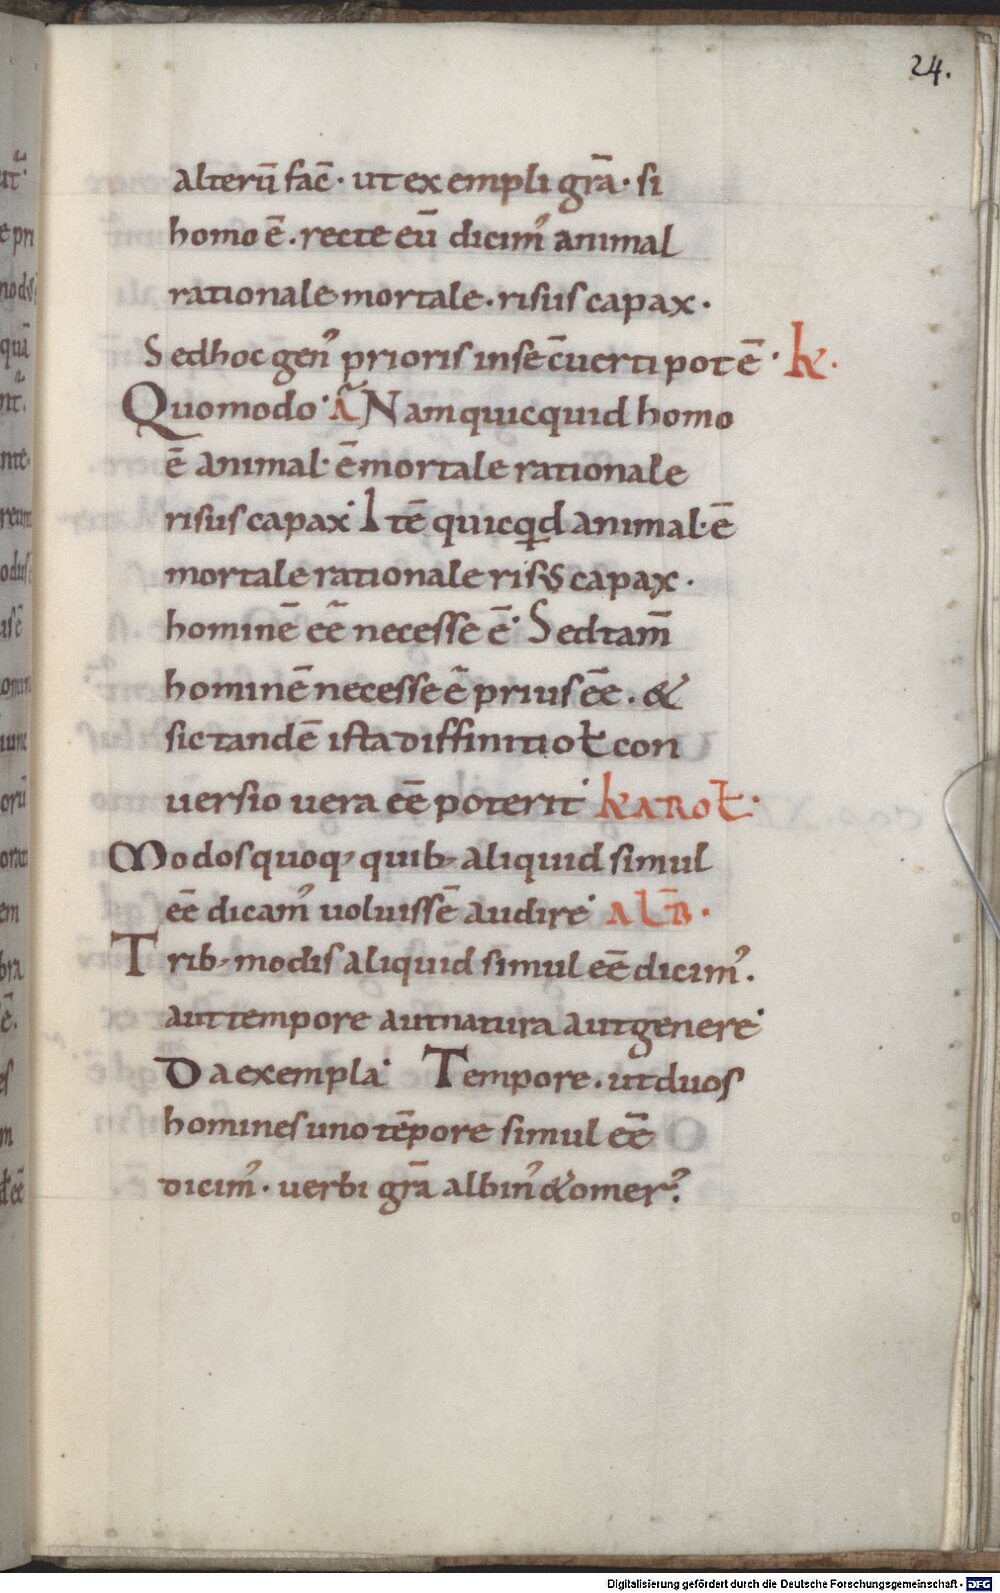 24.
alterū fac̄· ut exempli grā· si
homo ē. recte eū dicim᾽ animal
rationale mortale. risus capax.
Sed hoc gen᾽ prioris in se c̄uerti pot ē· k.
Quomodo· Ā Nam quicquid homo
ē animal· ē mortale rationale
risus capax· Itē quicqd animal· ē
mortale rationale risus capax.
hominē eē necesse ē· Sed tam̄
hominē necesse ē prius eē. &
sic tandē ista diffinitio ł con
uersio uera eē poterit· karoł·
Modos quoq; quib; aliquid simul
eē dicam᾽ uoluissē audire· alb̄·
Trib; modis aliquid simul eē dicim᾽.
aut tempore aut natura aut genere·
Da exempla· Tempore. ut duos
homines uno tēpore simul eē
dicim᾽. uerbi grā albin᾽ & omer᾽.
Digitalisierung gefördert durch die Deutsche Forschungsgemeinschaft - DFG